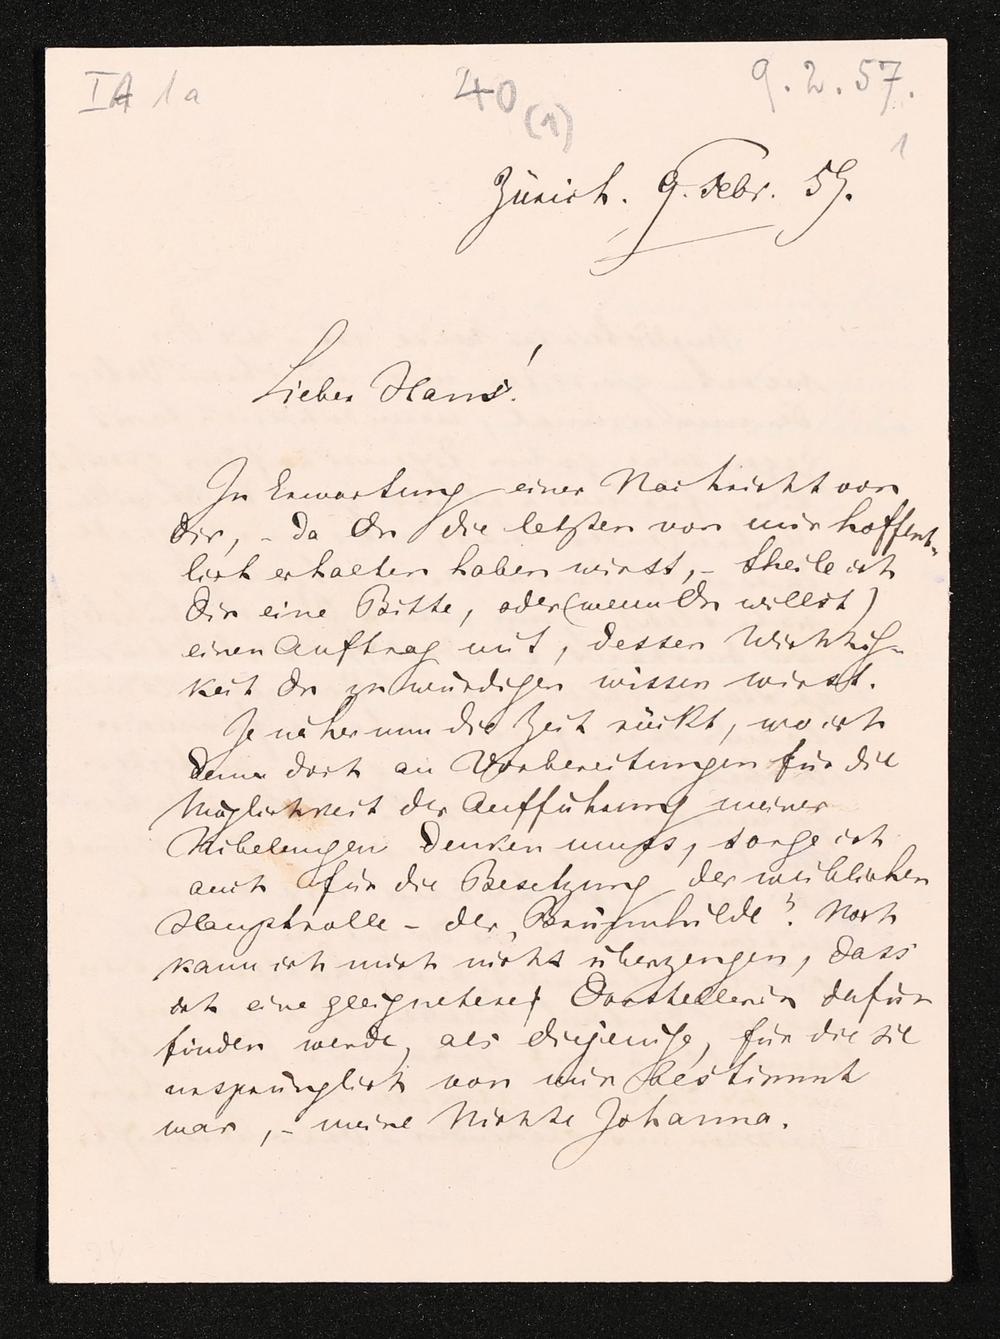 IA 1a 40 (1) 9.2.57.
1
Zürich. 9. Febr. 57.
Lieber Hans!
In Erwartung einer Nachricht von
Dir, - da Du die letzten von mir hoffent-
lich erhalten haben wirst, - theile ich
Dir eine Bitte, oder (wenn Du willst)
einen Auftrag mit, dessen Wichtig-
keit Du zu würdigen wissen wirst.
Je näher nun die Zeit rückt, wo ich
denn doch an Vorbereitungen für die
Möglichkeit der Aufführung meiner
Nibelungen denken muss, sorge ich
auch für die Besetzung der weiblichen
Hauptrolle - der „Brünnhilde". Noch
kann ich mich nicht überzeugen, dass
ich eine geeignetere Darstellerin dafür
finden werde, als diejenige, für die sie
ursprünglich von mir bestimmt
war, - meine Nichte Johanna.